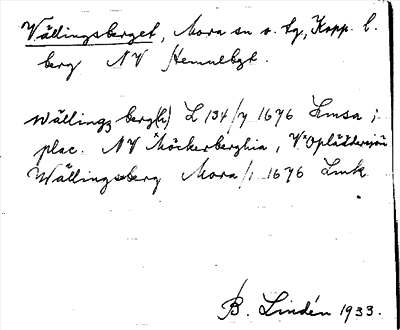 Vällingsberget, Mora sn o. tg, Kopp. l.
berg NV Hemulbgt.
wällingz berg(h) L 134/7 1676 Lmsa;
plac. NV Möckerberghia, V Oplättersjön
Wällingsberg Mora/1 1676 Lmk
B. Lindén 1933.